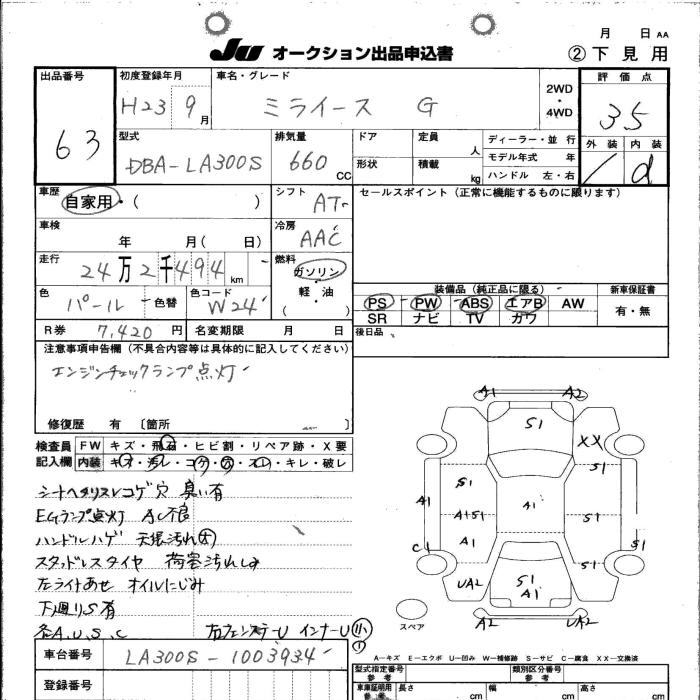 月 日 AA
JU オークション出品申込書 ②下見用
出品番号 初度登録年月 車名・グレード 2WD・4WD 評価点
63 H23 9月 ミライース G 3.5
型式 排気量 ドア 定員 人 ディーラー・並行 外装 内装
DBA-LA300S 660 CC 形状 積載 kg モデル年式 年 d
ハンドル 左・右
車歴 自家用・( ) シフト AT セールスポイント(正常に機能するものに限ります)
車検 年 月( 日) 冷房 AAC
走行 24万2千494km 燃料 ガソリン・軽・油
色 パール 色替 色コード W24 装備品(純正品に限る) 新車保証書
PS PW ABS エアB AW 有・無
SR ナビ TV カワ
R券 7,420円 名変期限 月 日 後日品
注意事項申告欄(不具合内容等は具体的に記入してください)
エンジンチェックランプ点灯
修復歴 有 〔箇所 〕
検査員 FW キズ・飛石・ヒビ割・リペア跡・X要
記入欄 内装 キズ・汚レ・コゲ・穴・スレ・キレ・破レ
シートヘタリスレコゲ穴 臭い有
EGランプ点灯 AC不良
ハンドルハゲ 天張汚れ(大)
スタッドレスタイヤ 荷室汚れしみ
左ライトあせ オイルにじみ
下廻りS有
各A.U.S.C 右フェンステーU インナーU
A1 A2
S1
XX
S1
S1
A1 A1 S1
A1S1
A1
C1 S1 S1
UA2 S1
A1
スペア A2 UA2
A-キズ E-エクボ U-凹み W-補修跡 S-サビ C-腐食 XX-交換済
車台番号 LA300S-1003934
登録番号
型式指定番号 参考 類別区分番号 参考
車庫証明用 参考 長さ cm 幅 cm 高さ cm